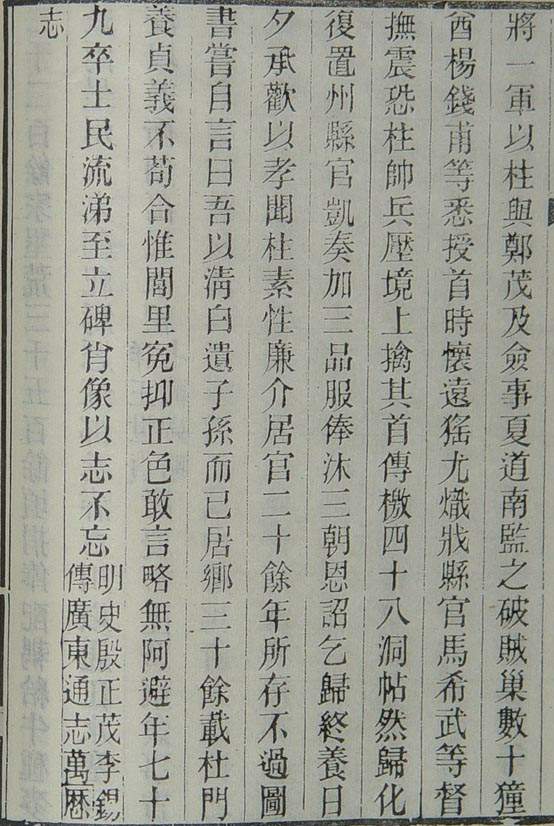 將一軍以柱與鄭茂及僉事夏道南監之破賊巢數十獞
酋楊錢甫等悉授首時懷遠猺尤熾戕縣官馬希武等督
撫震恐柱帥兵壓境上擒其首傳檄四十八洞帖然歸化
復置州縣官凱奏加三品服俸沐三朝恩詔乞歸終養日
夕承歡以孝聞柱素性廉介居官二十餘年所存不過圖
書嘗自言曰吾以淸白遺子孫而已居鄉三十餘載杜門
養貞義不苟合惟閭里冤抑正色敢言略無阿避年七十
九卒士民流涕至立碑肖像以志不忘
明史殷正茂李錫
傳廣東通志萬厯
志